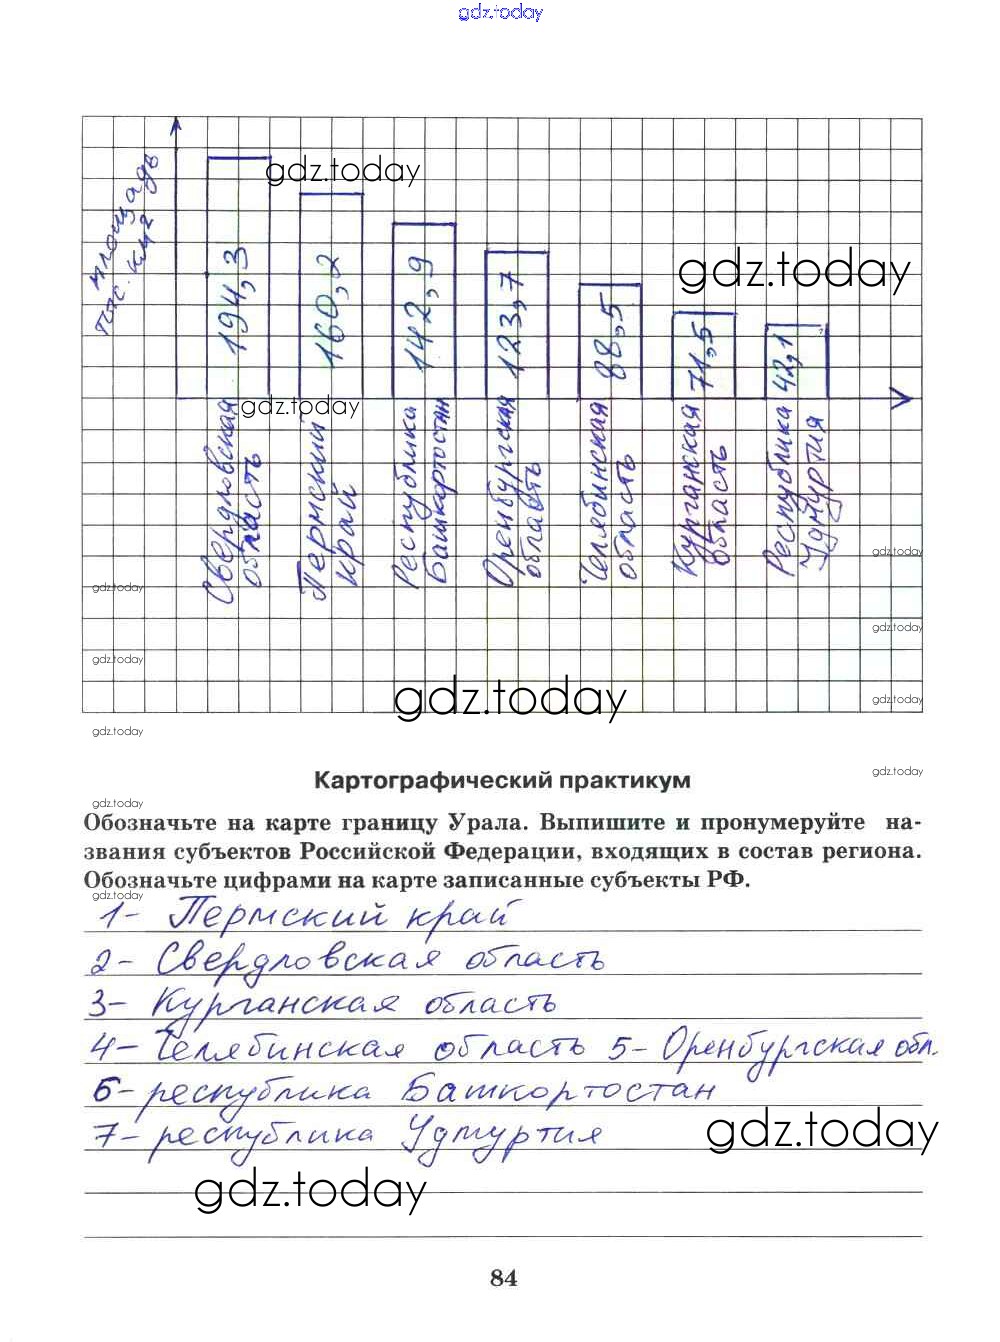 gdz.today
площадь
тыс. км2
gdz.today
194,3
160,2
142,9
123,7
88,5
71,5
42,1
gdz.today
gdz.today
Свердловская
область
Пермский
край
Республика
Башкортостан
Оренбургская
область
Челябинская
область
Курганская
область
Республика
Удмуртия
gdz.today
gdz.today
gdz.today
gdz.today
gdz.today
gdz.today
gdz.today
gdz.today
Картографический практикум
gdz.today
Обозначьте на карте границу Урала. Выпишите и пронумеруйте на-
звания субъектов Российской Федерации, входящих в состав региона.
Обозначьте цифрами на карте записанные субъекты РФ.
gdz.today
1- Пермский край
2- Свердловская область
3- Курганская область
4- Челябинская область 5- Оренбургская обл.
6- республика Башкортостан
7- республика Удмуртия
gdz.today
gdz.today
84